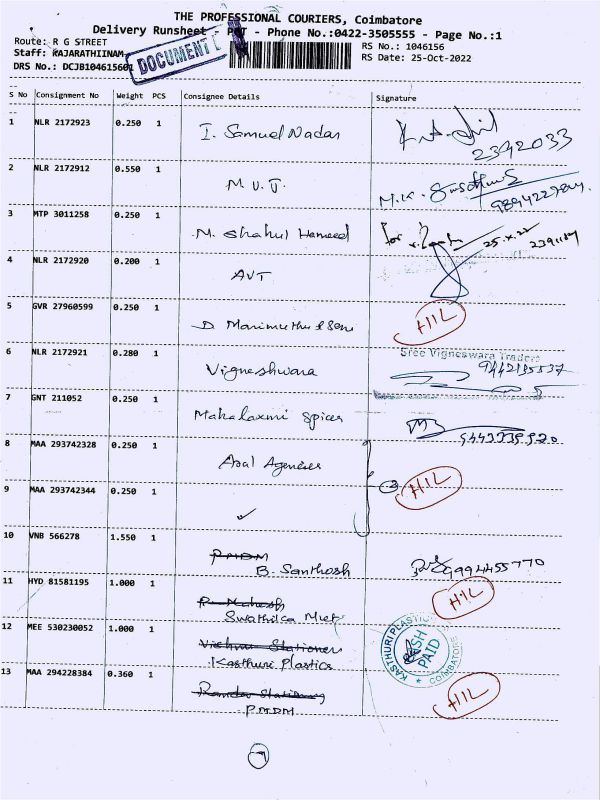 THE PROFESSIONAL COURIERS, Coimbatore
Delivery Runsheet - - Phone No.:0422-3505555 - Page No.:1
Route: R G STREET
RS No.: 1046156
Staff: KAJARATHIINAM
DOCUMENT
RS Date: 25-Oct-2022
DRS No.: DCJB104615601
S No Consignment No Weight PCS Consignee Details Signature
1 NLR 2172923 0.250 1 I. Samuel Nadar
2342033
2 NLR 2172912 0.550 1 M.V.T. M.K.
3 MTP 3011258 0.250 1 M. Shahul Hameed for 25.X.22
4 NLR 2172920 0.200 1 AVT
5 GVR 27960599 0.250 1 D. Marimuthu & Sons HIL
6 NLR 2172921 0.280 1 Vigneshwara Sree Vigneswara Traders
9442135537
7 GNT 211052 0.250 1 Mahalaxmi Spices
8 MAA 293742328 0.250 1 Agencies
9 MAA 293742344 0.250 1 ✓ 2 HIL
10 VNB 566278 1.550 1 PMDM
B. Santhosh 9994455770
11 HYD 81581195 1.000 1 HIL
Swathika
12 MEE 530230052 1.000 1 Vishnu Stationers
Kasthuri Plastics
KASTHURI PLASTIC
CASH PAID
COIMBATORE
13 MAA 294228384 0.360 1 HIL
PMDM